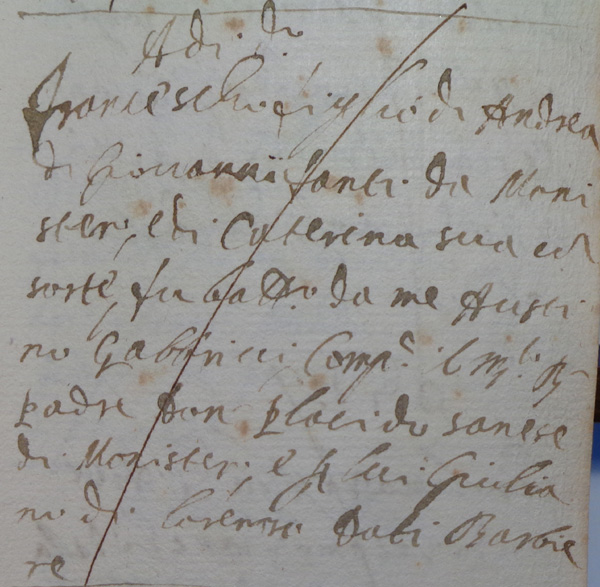 Adi do
Francescho figlio di Andrea
di Giovanni santi da Moni
stero, e di Caterina sua co
sorte, fu batto da me Austi
no Gabbricci Compe il
padre Don Placido sanese
di Monistero, e p lui Giulia
no di Lorenzo Dati Barbie
re